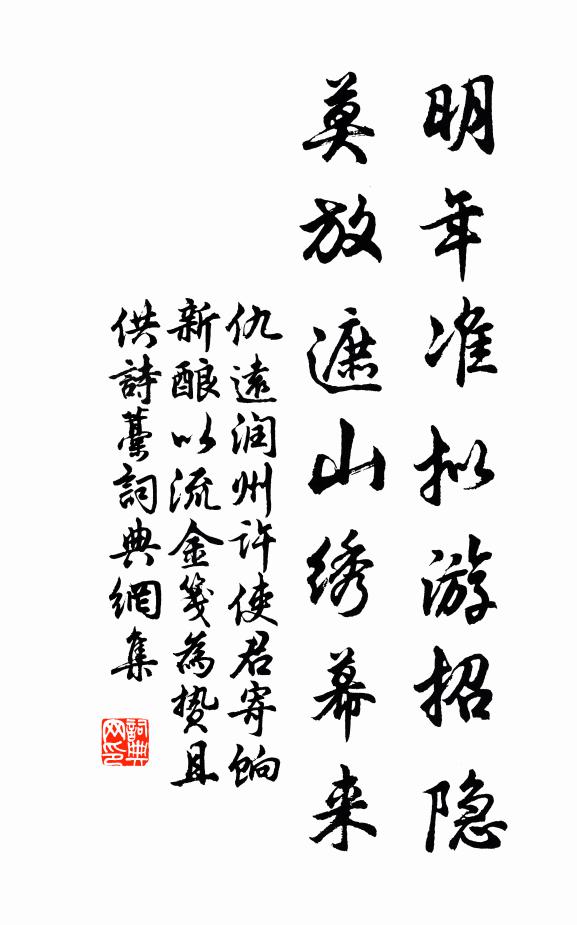 明年准拟游招隐
莫放遮山绣幕来
仇遠润州许使君寄饷
新酿以流金笺為贽且
供詩藁詞典網集
詞典网印